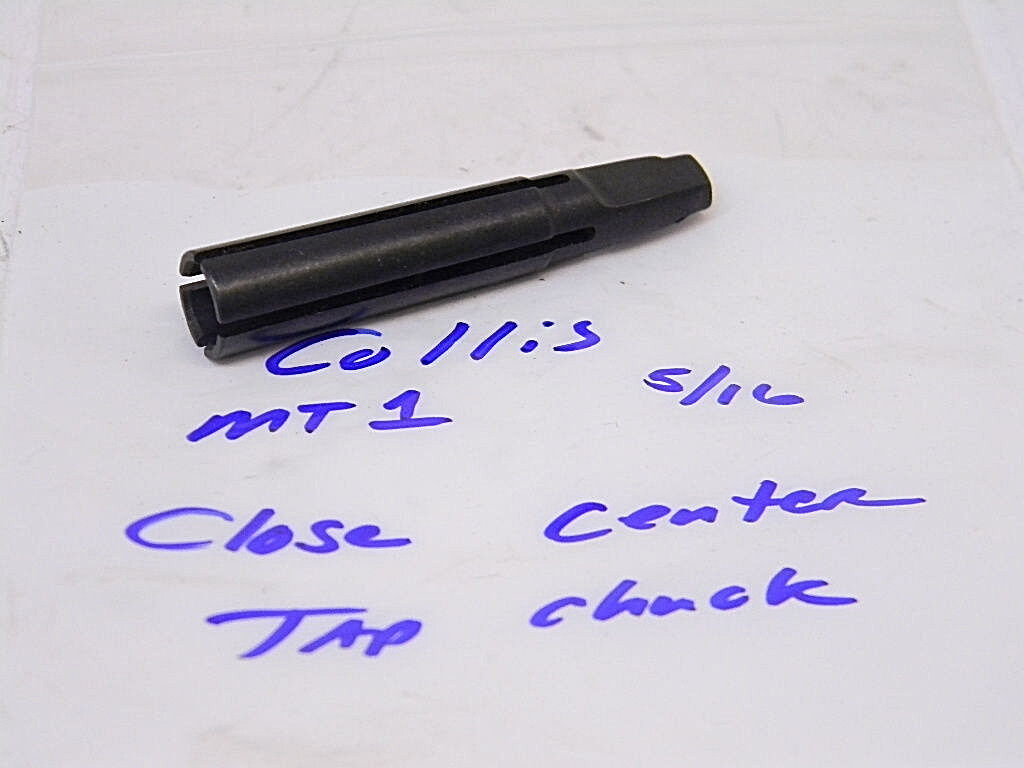 Collis
MT 1 5/16
Close Center
Tap chuck